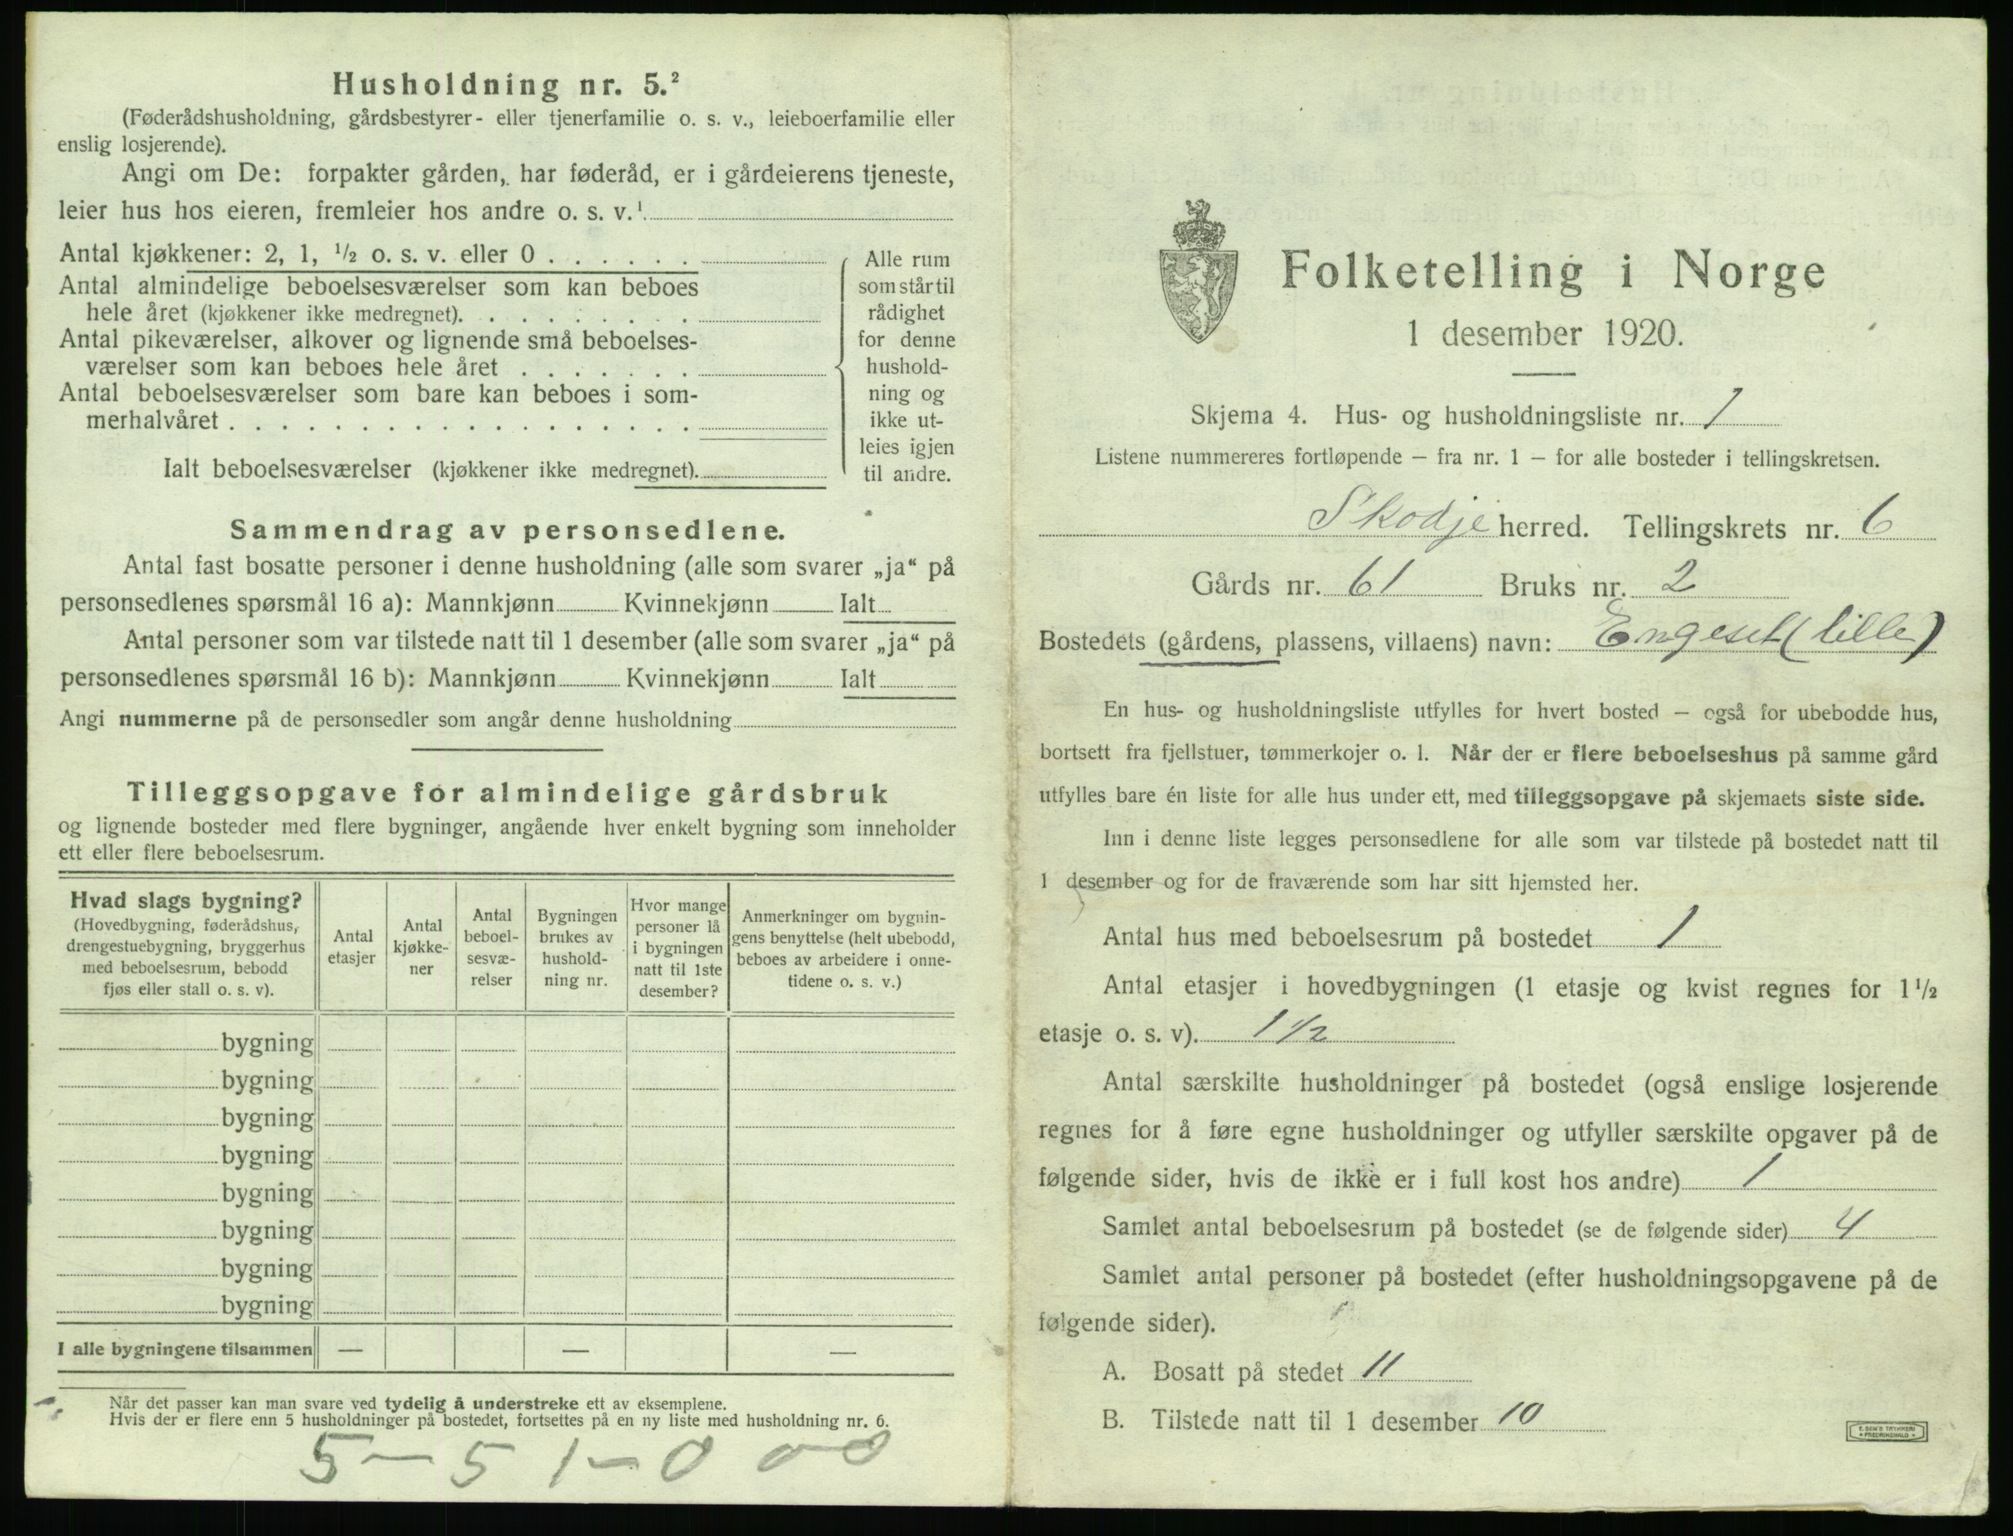 Husholdning nr. 5.²
(Føderådshusholdning, gårdsbestyrer- eller tjenerfamilie o. s. v., leieboerfamilie eller
enslig losjerende).
Angi om De: forpakter gården, har føderåd, er i gårdeierens tjeneste,
leier hus hos eieren, fremleier hos andre o. s. v.¹
Antal kjøkkener: 2, 1, ½ o. s. v. eller 0 . . . . . .
Antal almindelige beboelsesværelser som kan beboes
hele året (kjøkkener ikke medregnet). . . . . . . . .
Antal pikeværelser, alkover og lignende små beboelses-
værelser som kan beboes hele året . . . . . . .
Antal beboelsesværelser som bare kan beboes i som-
merhalvåret . . . . . . . . . . . . . . . . . .
Ialt beboelsesværelser (kjøkkener ikke medregnet).
Alle rum
som står til
rådighet
for denne
hushold-
ning og
ikke ut-
leies igjen
til andre.
Sammendrag av personsedlene.
Antal fast bosatte personer i denne husholdning (alle som svarer „ja“ på
personsedlenes spørsmål 16 a): Mannkjønn Kvinnekjønn Ialt
Antal personer som var tilstede natt til 1 desember (alle som svarer „ja“ på
personsedlenes spørsmål 16 b): Mannkjønn Kvinnekjønn Ialt
Angi nummerne på de personsedler som angår denne husholdning
Tilleggsopgave for almindelige gårdsbruk
og lignende bosteder med flere bygninger, angående hver enkelt bygning som inneholder
ett eller flere beboelsesrum.
Hvad slags bygning?
(Hovedbygning, føderådshus,
drengestuebygning, bryggerhus
med beboelsesrum, bebodd
fjøs eller stall o. s. v).
Antal
etasjer
Antal
kjøkke-
ner
Antal
beboel-
sesvæ-
relser
Bygningen
brukes av
hushold-
ning nr.
Hvor mange
personer lå
i bygningen
natt til 1ste
desember?
Anmerkninger om bygnin-
gens benyttelse (helt ubebodd,
beboes av arbeidere i onne-
tidene o. s. v.)
bygning
bygning
bygning
bygning
bygning
bygning
bygning
bygning
I alle bygningene tilsammen — — —
Når det passer kan man svare ved tydelig å understreke ett av eksemplene.
Hvis der er flere enn 5 husholdninger på bostedet, fortsettes på en ny liste med husholdning nr. 6.
5 — 5 1 — 0 0-0
Folketelling i Norge
1 desember 1920.
Skjema 4. Hus- og husholdningsliste nr. 1
Listene nummereres fortløpende — fra nr. 1 — for alle bosteder i tellingskretsen.
Skodje herred. Tellingskrets nr. 6
Gårds nr. 61 Bruks nr. 2
Bostedets (gårdens, plassens, villaens) navn: Engeset (lille)
En hus- og husholdningsliste utfylles for hvert bosted — også for ubebodde hus,
bortsett fra fjellstuer, tømmerkojer o. l. Når der er flere beboelseshus på samme gård
utfylles bare én liste for alle hus under ett, med tilleggsopgave på skjemaets siste side.
Inn i denne liste legges personsedlene for alle som var tilstede på bostedet natt til
1 desember og for de fraværende som har sitt hjemsted her.
Antal hus med beboelsesrum på bostedet 1
Antal etasjer i hovedbygningen (1 etasje og kvist regnes for 1½
etasje o. s. v). 1½
Antal særskilte husholdninger på bostedet (også enslige losjerende
regnes for å føre egne husholdninger og utfyller særskilte opgaver på de
følgende sider, hvis de ikke er i full kost hos andre) 1
Samlet antal beboelsesrum på bostedet (se de følgende sider) 4
Samlet antal personer på bostedet (efter husholdningsopgavene på de
følgende sider).
A. Bosatt på stedet 11
B. Tilstede natt til 1 desember 10